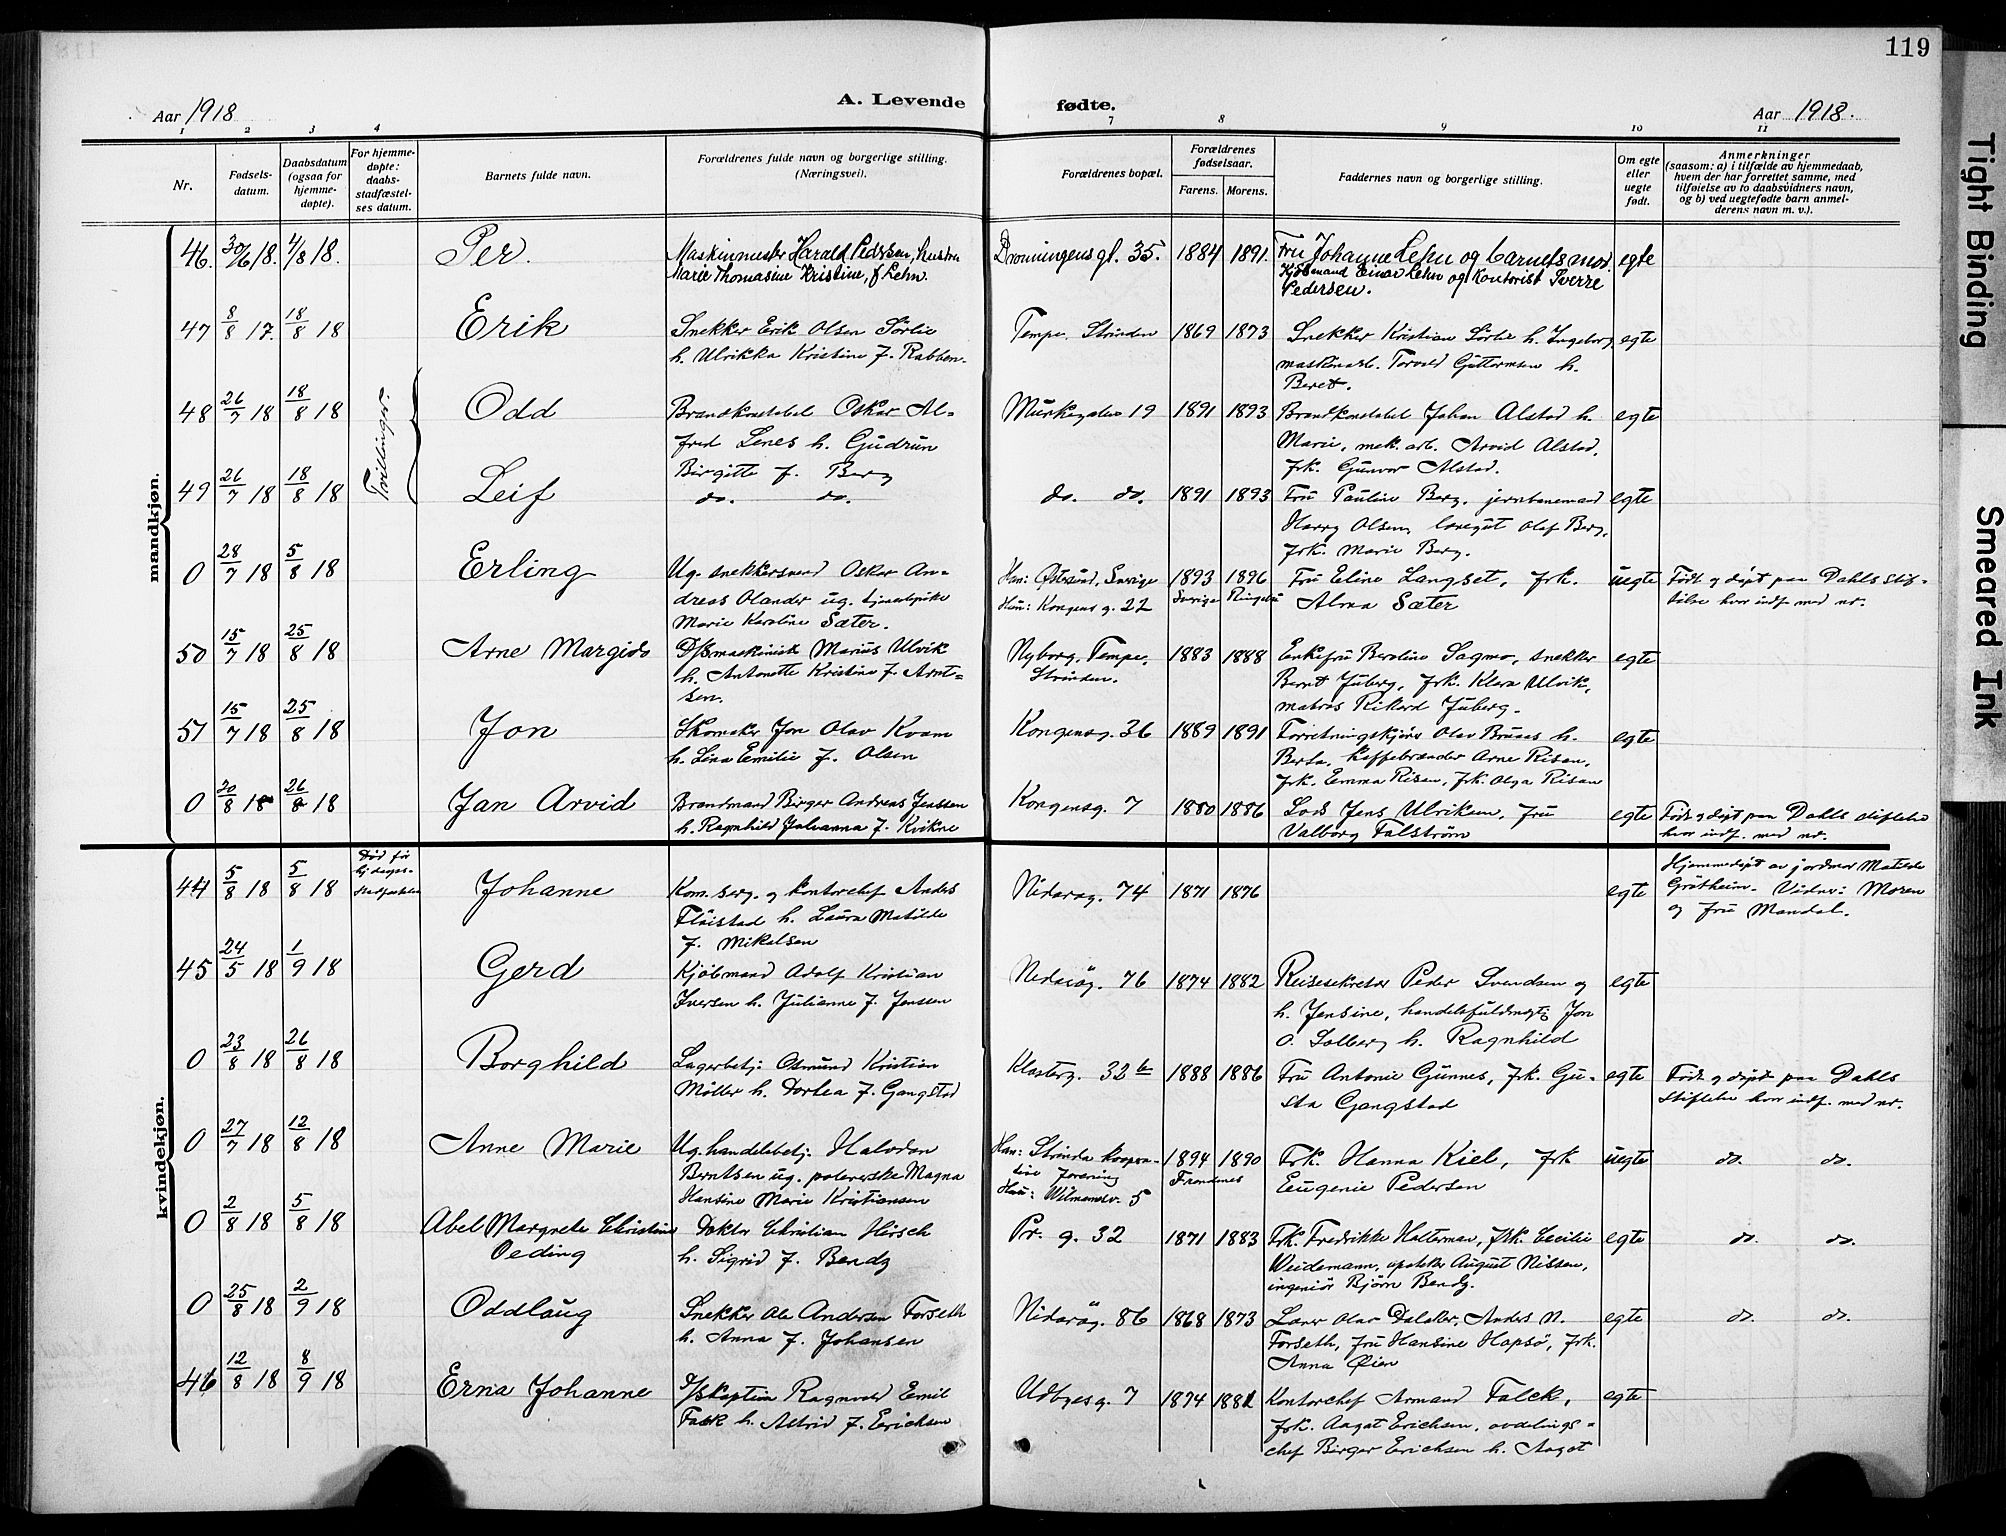 119
A. Levende fødte.
Aar 1918
Aar 1918.
1 2 3 4 7 8 9 10 11
Nr.
Fødsels-
datum.
Daabsdatum
(ogsaa for
hjemme-
døpte).
For hjemme-
døpte:
daabs-
stadfæstel-
ses datum.
Barnets fulde navn.
Forældrenes fulde navn og borgerlige stilling.
(Næringsvei).
Forældrenes bopæl.
Forældrenes
fødselsaar.
Farens. Morens.
Faddernes navn og borgerlige stilling.
Om egte
eller
uegte
født.
Anmerkninger
(saasom: a) i tilfælde av hjemmedaab,
hvem der har forrettet samme, med
tilføielse av to daabsvidners navn,
og b) ved uegtefødte barn anmel-
derens navn m. v.).
mandkjøn.
46. 30/6 18. 4/8 18. Per. Maskinmester Harald Pedersen, hustru Dronningensgt. 35. 1884 1891. Fru Johanne Lehn og barnets mor. egte
Marie Thomasine Kristine, f. Lehn. Kjøbmand Einar Lehn og kontorist Sverre
Pedersen.
47 8/8 17. 18/8 18 Erik Snekker Erik Olsen Sørlie Tempe, Strinden 1869 1873 Snekker Kristian Sørlie h. Ingeborg, egte
h. Ulrikka Kristine f. Rabben. maskinarb. Torvald Guttormsen h.
Beret.
Tvillinger.
48 26/7 18 18/8 18 Odd Brandkonstabel Oskar Al= Munkegaten 19 1891 1893 Brandkonstabel Johan Alstad h. egte
fred Lenes h. Gudrun Marie, mek. arb. Arvid Alstad,
Birgitte f. Berg frk. Gunvor Alstad.
49 26/7 18 18/8 18 Leif do. do. do. do. 1891 1893 Fru Pauline Berg, jernbanemand egte
Harry Olsen, Olaf Berg,
frk. Marie Berg.
0 28/7 18 5/8 18 Erling Ug. snekkersvend Oskar An= Han: Østersund, Sverige 1893 1896 Fru Eline Langset, frk. uegte Født og døpt paa Dahls Stif=
dreas Olander ug. tjenestepike Hun: Kongens g. 22 Sverige Ringebu Alma Sæter telse hvor indf. med nr.
Marie Karoline Sæter.
50 15/7 18 25/8 18 Arne Margido D/Smaskinist Marius Ulvik Nyborg, Tempe, 1883 1888 Enkefru Beroline Sagmo, snekker egte
h. Antonette Kristine f. Arnt= Strinden. Bernt Juberg, frk. Klara Ulvik,
sen. matros Rikard Juberg.
51 15/7 18 25/8 18 Jon Skomaker Jon Olav Kvam Kongensg. 36 1889 1891 Forretningskjører Olav Bruset h. egte
h. Lina Emilie f. Olsen Berta, kaffebrænder Arne Risan,
frk. Emma Risan, frk. Olga Risan
0 20/8 18 26/8 18 Jan Arvid Brandmand Birger Andreas Jenssen Kongensg. 7 1880 1886 Lods Jens Ulriksen, fru egte Født og døpt paa Dahls stiftelse
h. Ragnhild Johanna f. Kvikne Valborg Falstrøm hvor indf. med nr.
kvindekjøn.
44 5/8 18 5/8 18 Død før Johanne Kom. berg. og kontorchef Anders Nidarøg. 74 1871 1876 egte Hjemmedøpt av jordmor Matilde
Flaistad h. Laura Matilde Grøtheim. Vidner: Moren
f. Mikalsen og fru Mandal.
45 24/5 18 1/9 18 Gerd Kjøbmand Adolf Kristian Nidarøg. 76 1874 1882 Reisesekretær Peder Svendsen og egte
Iversen h. Julianne f. Jenssen h. Jensine, handelsfuldmægt. Jon
O. Solberg h. Ragnhild
0 23/8 18 26/8 18 Borghild Lagerbetj. Osmund Kristian Klosterg. 32 b 1888 1886 Fru Antonie Gunnes, frk. Gu= egte Født og døpt paa Dahls
Møller h. Dortea f. Gangstad sta Gangstad Stiftelse hvor indf. med nr.
0 27/7 18 12/8 18 Anne Marie Ug. handelsbetj. Halvdan Han: Strinda koopra= 1894 1890 Frk. Hanna Kiel, frk uegte do. do.
Berntsen ug. polererske Magna tive forening Eugenie Pedersen
Hansine Marie Kristiansen Hun: Wilmannsv. 5
0 2/8 18 5/8 18 Abel Margrete Christine Doktor Christian Hirsch Pr. g. 32 1871 1883 Frk. Fredrikke Halterman, frk. Cecilie egte do. do.
Oeding h. Sigrid f. Bendz Weidemann, apoteker August Nilssen,
ingeniør Bjørn Bendz.
0 25/8 18 2/9 18 Oddlaug Snekker Ole Andersen Forseth Nidarøg. 86 1868 1873 Lærer Olav Dalaker, Anders N. egte do. do.
h. Anna f. Johansen Forseth, fru Hansine Hopsø, frk.
Anna Øien
46 12/8 18 8/9 18 Erna Johanne D/Skaptein Ragnvald Emil Udbyesg. 7 1874 1881 Kontorchef Armand Falck, egte
Falck h. Astrid f. Erichsen frk. Aagot Erichsen, avdelings=
chef Birger Erichsen h. Aagot
Tight Binding
Smeared Ink